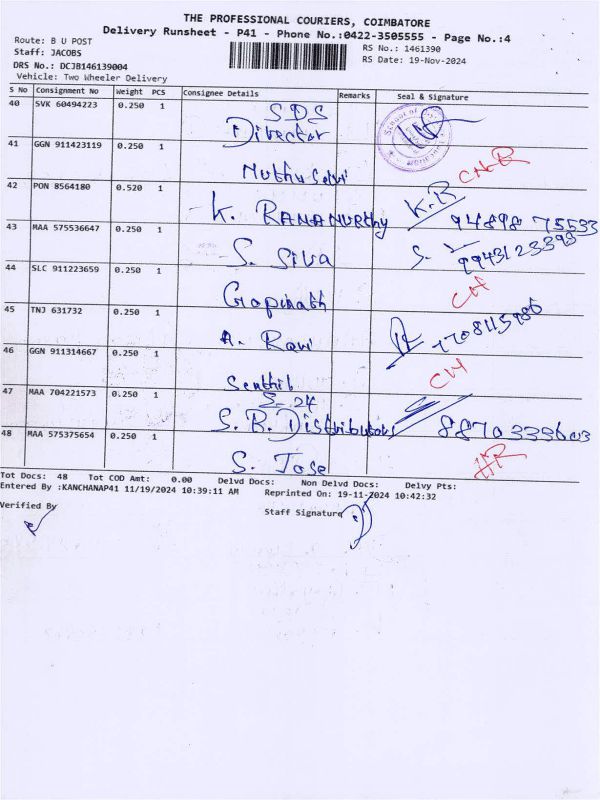 THE PROFESSIONAL COURIERS, COIMBATORE
Delivery Runsheet - P41 - Phone No.:0422-3505555 - Page No.:4
Route: B U POST
RS No.: 1461390
Staff: JACOBS
RS Date: 19-Nov-2024
DRS No.: DCJB146139004
Vehicle: Two Wheeler Delivery
S No Consignment No Weight PCS Consignee Details Remarks Seal & Signature
40 SVK 60494223 0.250 1 SDS Director School of
41 GGN 911423119 0.250 1 Muthu Selvi CNR
42 PON 8564180 0.520 1 K. RAMAMURthy K.R 94898 75533
43 MAA 575536647 0.250 1 S. Siva S. 9943123393
44 SLC 911223659 0.250 1 Gopinath CH
45 TNJ 631732 0.250 1 A. Ravi 7708115986
46 GGN 911314667 0.250 1 Senthil CH
47 MAA 704221573 0.250 1 S-24 S.R. Distributors 8870333603
48 MAA 575375654 0.250 1 S. Jose HR
Tot Docs: 48 Tot COD Amt: 0.00 Delvd Docs: Non Delvd Docs: Delvy Pts:
Entered By :KANCHANAP41 11/19/2024 10:39:11 AM Reprinted On: 19-11-2024 10:42:32
Verified By
Staff Signature